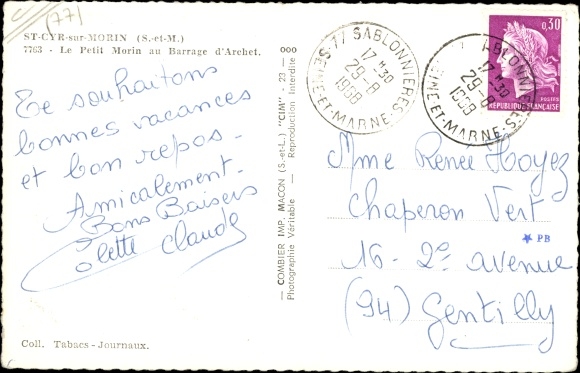 (77)
ST-CYR-sur-MORIN (S.-et-M.)
7763 - Le Petit Morin au Barrage d'Archet.
Te souhaitons
bonnes vacances
et bon repos -
Amicalement -
Bons Baisers
Colette Claude
Coll. Tabacs - Journaux.
000
— COMBIER IMP. MACON (S.-et-L.) "CIM" - 23 —
Photographie Véritable - Reproduction Interdite
77 SABLONNIERES
17 H.30
29-8
1968
SEINE-ET-MARNE
77 SABLONNIERES
17 H.30
29-8
1968
SEINE-ET-MARNE
0,30
POSTES
REPUBLIQUE FRANÇAISE
Mme Renée Hoyez
Chaperon Vert
PB
16 - 2e avenue
(94) Gentilly